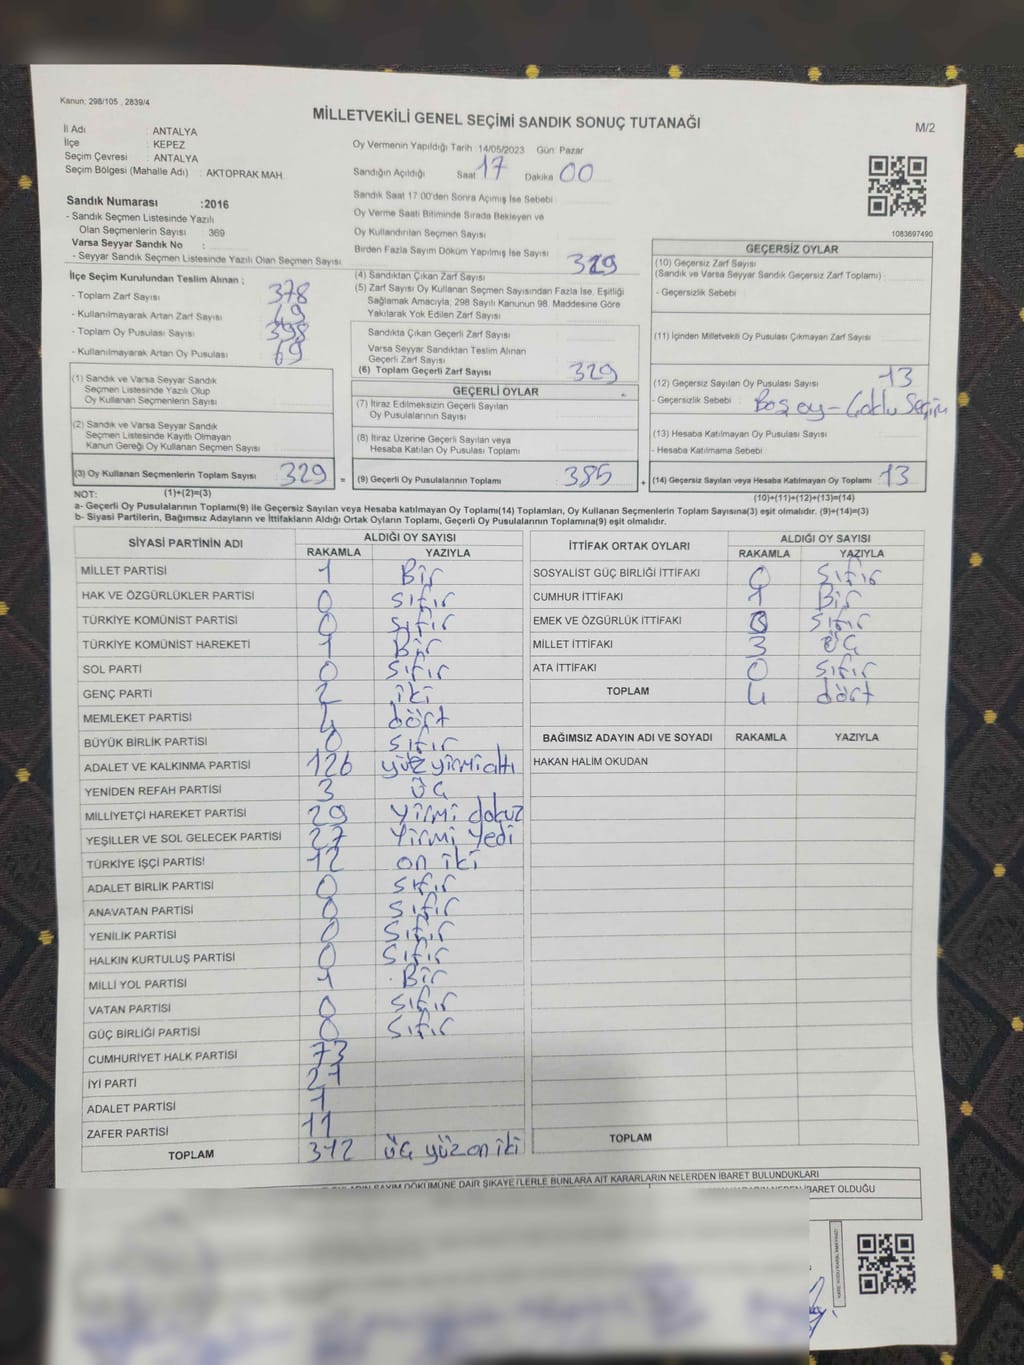 Kanun; 298/105 , 2839/4
MİLLETVEKİLİ GENEL SEÇİMİ SANDIK SONUÇ TUTANAĞI
M/2
İl Adı : ANTALYA
İlçe : KEPEZ
Seçim Çevresi : ANTALYA
Seçim Bölgesi (Mahalle Adı) : AKTOPRAK MAH.
Oy Vermenin Yapıldığı Tarih : 14/05/2023 Gün: Pazar
Sandığın Açıldığı Saat 17 Dakika 00
Sandık Saat 17.00'den Sonra Açımış İse Sebebi :
Oy Verme Saati Bitiminde Sırada Bekleyen ve
Oy Kullandırılan Seçmen Sayısı
Birden Fazla Sayım Döküm Yapılmış İse Sayısı
1083697490
Sandık Numarası :2016
- Sandık Seçmen Listesinde Yazılı
Olan Seçmenlerin Sayısı : 369
Varsa Seyyar Sandık No :
- Seyyar Sandık Seçmen Listesinde Yazılı Olan Seçmen Sayısı
İlçe Seçim Kurulundan Teslim Alınan ;
- Toplam Zarf Sayısı 378
- Kullanılmayarak Artan Zarf Sayısı 49
- Toplam Oy Pusulası Sayısı 398
- Kullanılmayarak Artan Oy Pusulası 69
(1) Sandık ve Varsa Seyyar Sandık
Seçmen Listesinde Yazılı Olup
Oy Kullanan Seçmenlerin Sayısı
(2) Sandık ve Varsa Seyyar Sandık
Seçmen Listesinde Kayıtlı Olmayan
Kanun Gereği Oy Kullanan Seçmen Sayısı
(3) Oy Kullanan Seçmenlerin Toplam Sayısı 329 =
(4) Sandıktan Çıkan Zarf Sayısı 329
(5) Zarf Sayısı Oy Kullanan Seçmen Sayısından Fazla İse, Eşitliği
Sağlamak Amacıyla; 298 Sayılı Kanunun 98. Maddesine Göre
Yakılarak Yok Edilen Zarf Sayısı
Sandıkta Çıkan Geçerli Zarf Sayısı
Varsa Seyyar Sandıktan Teslim Alınan
Geçerli Zarf Sayısı
(6) Toplam Geçerli Zarf Sayısı 329
GEÇERLİ OYLAR
(7) İtiraz Edilmeksizin Geçerli Sayılan
Oy Pusulalarının Sayısı
(8) İtiraz Üzerine Geçerli Sayılan veya
Hesaba Katılan Oy Pusulası Toplamı
(9) Geçerli Oy Pusulalarının Toplamı 385 +
GEÇERSİZ OYLAR
(10) Geçersiz Zarf Sayısı
(Sandık ve Varsa Seyyar Sandık Geçersiz Zarf Toplamı)
- Geçersizlik Sebebi
(11) İçinden Milletvekili Oy Pusulası Çıkmayan Zarf Sayısı
(12) Geçersiz Sayılan Oy Pusulası Sayısı 13
- Geçersizlik Sebebi : Boş oy - Çoklu Seçim
(13) Hesaba Katılmayan Oy Pusulası Sayısı
- Hesaba Katılmama Sebebi
(14) Geçersiz Sayılan veya Hesaba Katılmayan Oy Toplamı 13
NOT: (1)+(2)=(3)
(10)+(11)+(12)+(13)=(14)
a- Geçerli Oy Pusulalarının Toplamı(9) ile Geçersiz Sayılan veya Hesaba katılmayan Oy Toplamı(14) Toplamları, Oy Kullanan Seçmenlerin Toplam Sayısına(3) eşit olmalıdır. (9)+(14)=(3)
b- Siyasi Partilerin, Bağımsız Adayların ve İttifakların Aldığı Ortak Oyların Toplamı, Geçerli Oy Pusulalarının Toplamına(9) eşit olmalıdır.
SİYASİ PARTİNİN ADI ALDIĞI OY SAYISI
RAKAMLA YAZIYLA
MİLLET PARTİSİ 1 Bir
HAK VE ÖZGÜRLÜKLER PARTİSİ 0 sıfır
TÜRKİYE KOMÜNİST PARTİSİ 0 sıfır
TÜRKİYE KOMÜNİST HAREKETİ 1 Bir
SOL PARTİ 0 sıfır
GENÇ PARTİ 2 iki
MEMLEKET PARTİSİ 4 dört
BÜYÜK BİRLİK PARTİSİ 0 sıfır
ADALET VE KALKINMA PARTİSİ 126 yüz yirmi altı
YENİDEN REFAH PARTİSİ 3 üç
MİLLİYETÇİ HAREKET PARTİSİ 29 yirmi dokuz
YEŞİLLER VE SOL GELECEK PARTİSİ 27 yirmi yedi
TÜRKİYE İŞÇİ PARTİSİ 12 on iki
ADALET BİRLİK PARTİSİ 0 sıfır
ANAVATAN PARTİSİ 0 sıfır
YENİLİK PARTİSİ 0 sıfır
HALKIN KURTULUŞ PARTİSİ 0 sıfır
MİLLİ YOL PARTİSİ 1 Bir
VATAN PARTİSİ 0 sıfır
GÜÇ BİRLİĞİ PARTİSİ 0 sıfır
CUMHURİYET HALK PARTİSİ 73
İYİ PARTİ 21
ADALET PARTİSİ 1
ZAFER PARTİSİ 11
TOPLAM 312 üç yüz on iki
İTTİFAK ORTAK OYLARI ALDIĞI OY SAYISI
RAKAMLA YAZIYLA
SOSYALİST GÜÇ BİRLİĞİ İTTİFAKI 0 sıfır
CUMHUR İTTİFAKI 1 Bir
EMEK VE ÖZGÜRLÜK İTTİFAKI 0 sıfır
MİLLET İTTİFAKI 3 üç
ATA İTTİFAKI 0 sıfır
TOPLAM 4 dört
BAĞIMSIZ ADAYIN ADI VE SOYADI RAKAMLA YAZIYLA
HAKAN HALİM OKUDAN
TOPLAM
SAYIM DÖKÜMÜNE DAİR ŞİKAYETLERLE BUNLARA AİT KARARLARIN NELERDEN İBARET BULUNDUKLARI
İBARET OLDUĞU